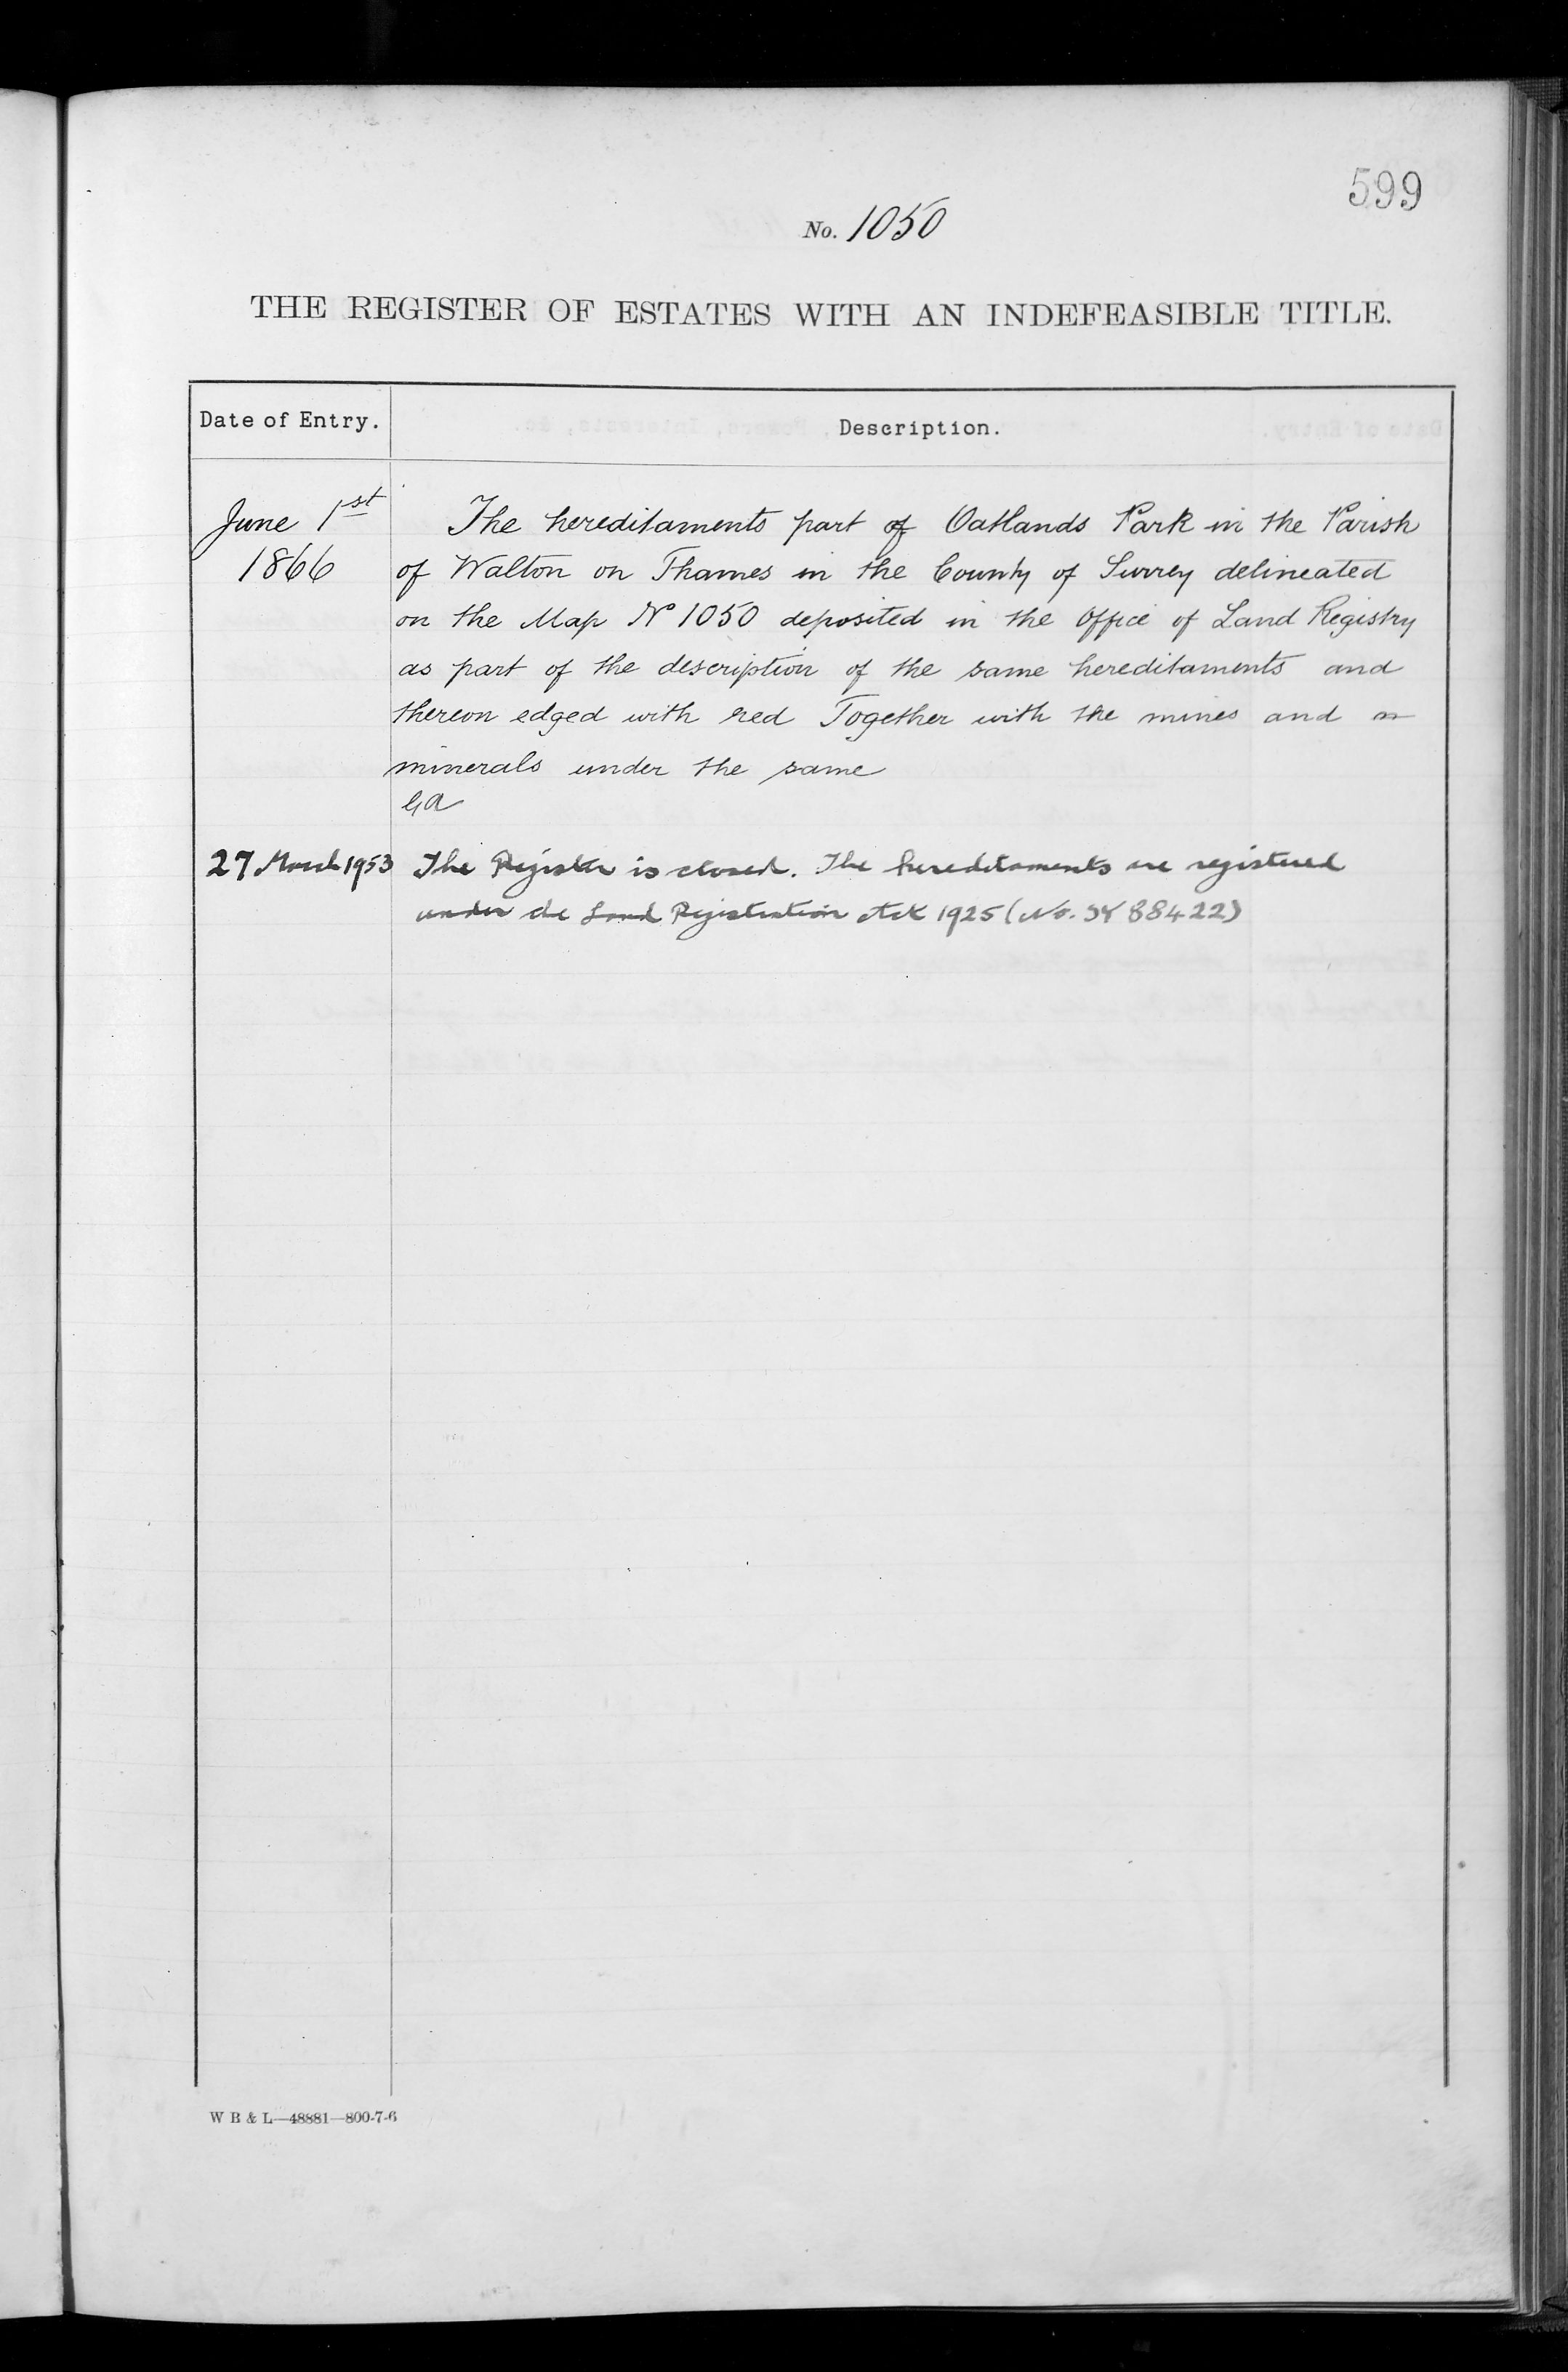 599
No. 1050
THE REGISTER OF ESTATES WITH AN INDEFEASIBLE TITLE.
Date of Entry. Description.
June 1st The hereditaments part of Oatlands Park in the Parish
1866 of Walton on Thames in the County of Surrey delineated
on the Map No 1050 deposited in the Office of Land Registry
as part of the description of the same hereditaments and
thereon edged with red Together with the mines and m
minerals under the same
27 March 1953 The Register is closed. The hereditaments are registered
under the Land Registration Act 1925 (No. SY 88422)
W B & L—48881—800-7-6